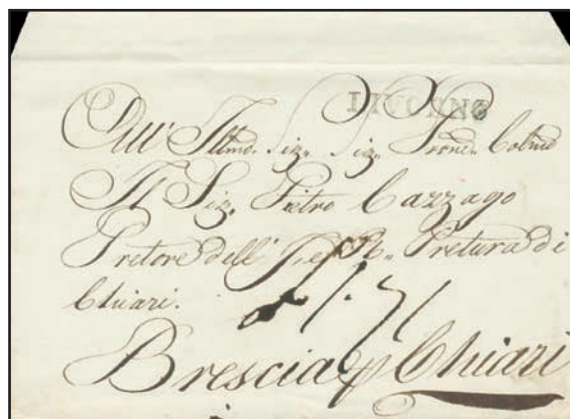 LIVORNO
All' Illmo. Sig. Sig. Prone. Colmo
Il Sig. Pietro Cazzago
Pretore dell' Pretura di
Chiari.
Brescia p Chiari